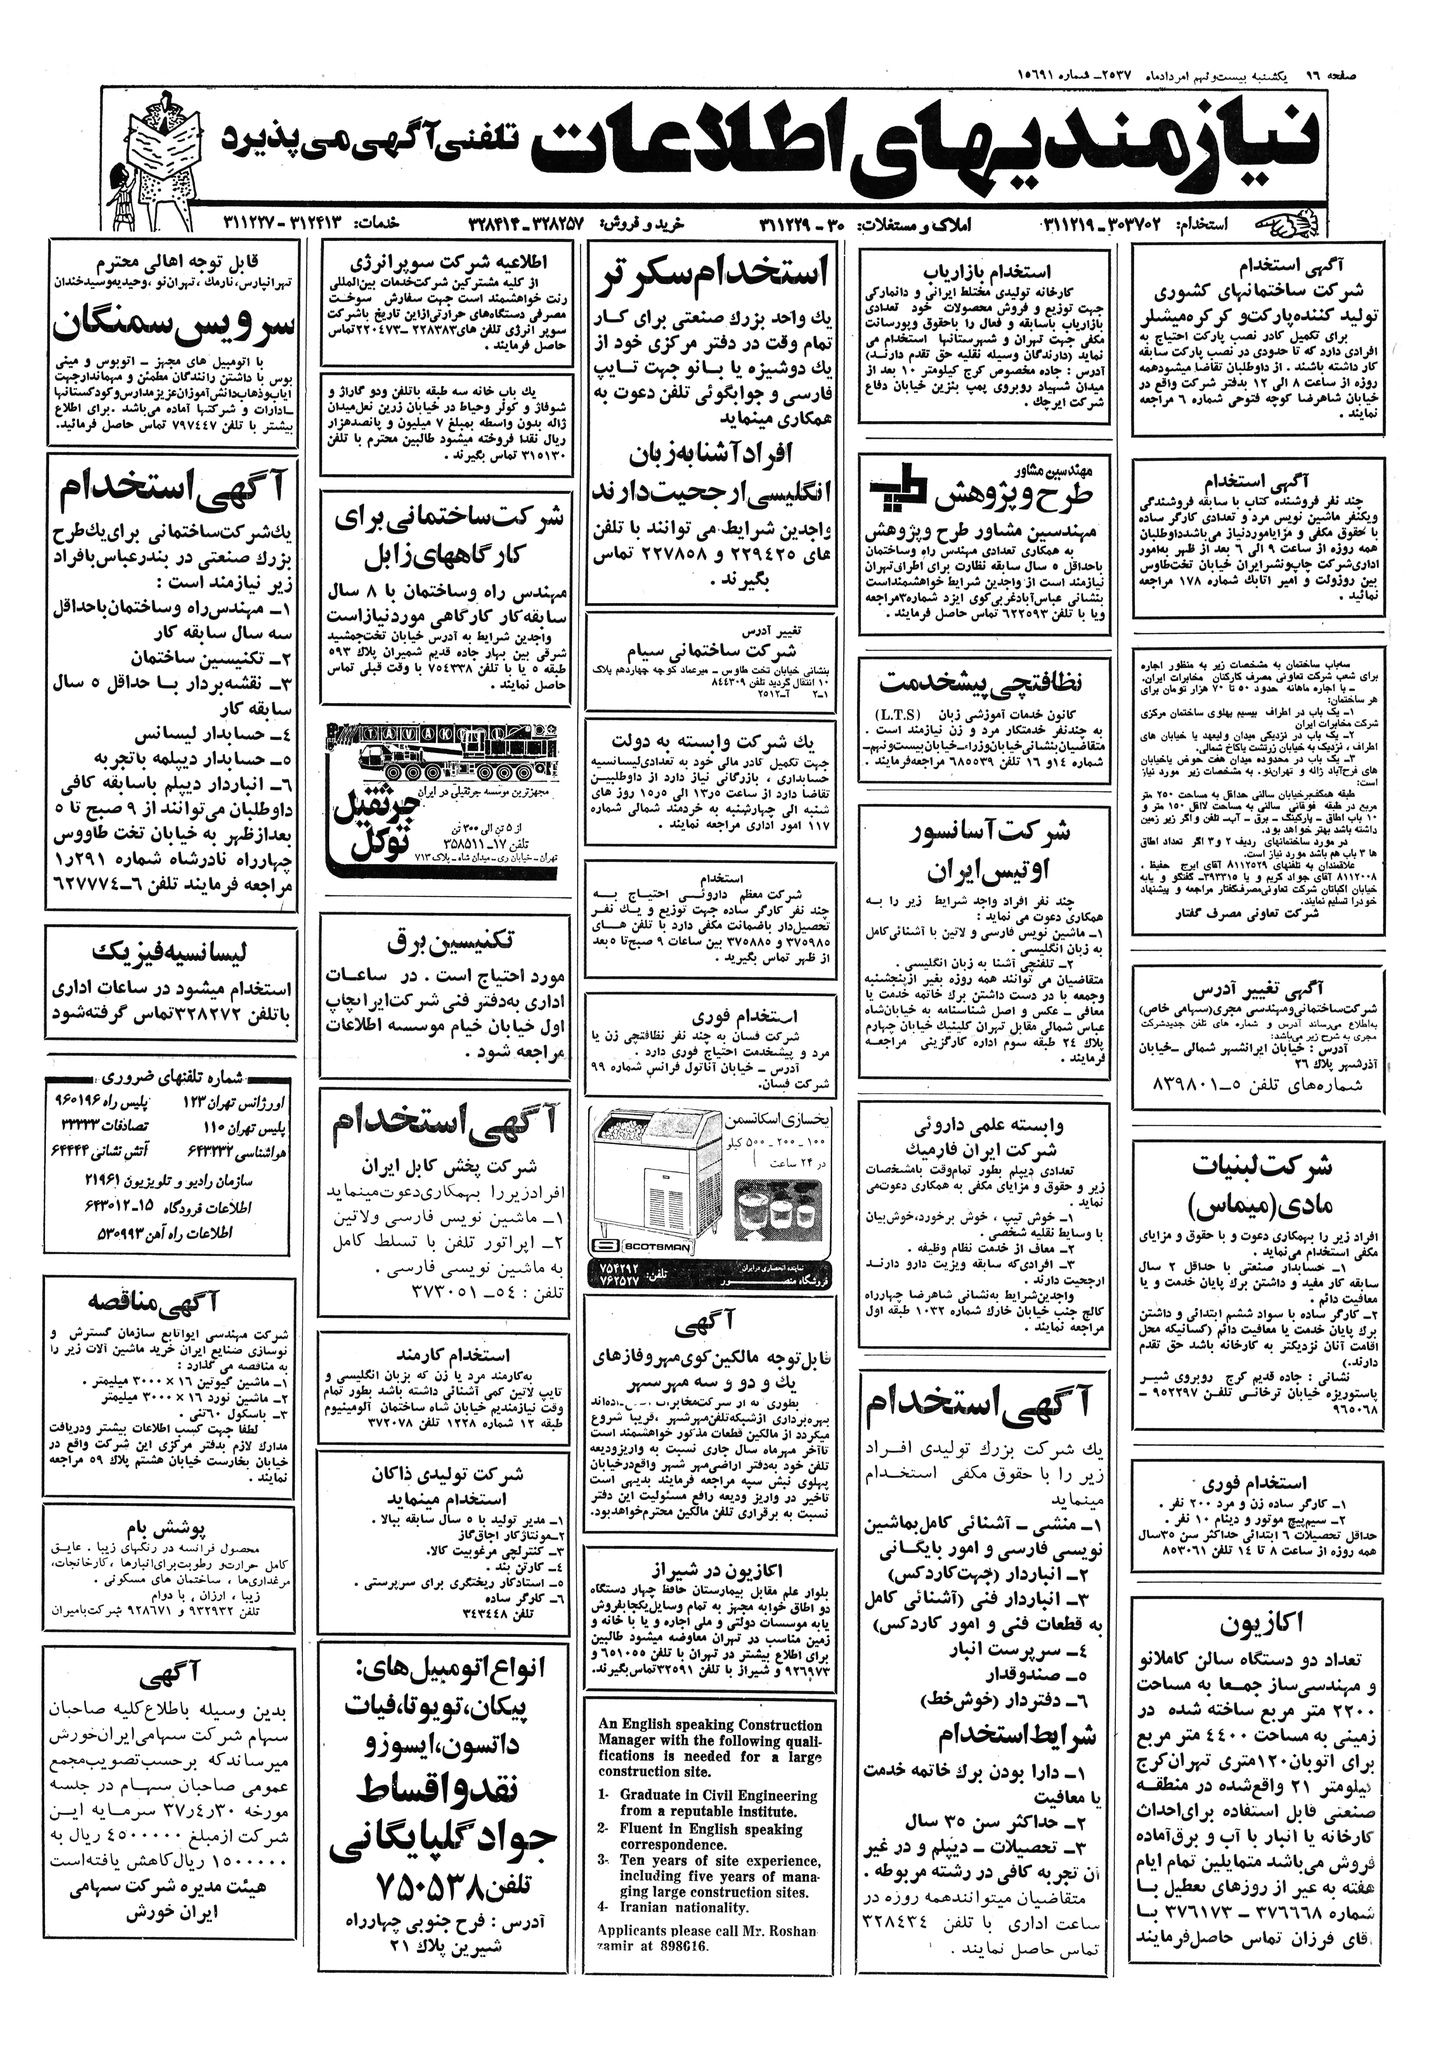 صفحه ۹۶ یکشنبه بیست و نهم امردادماه ۲۵۳۷- شماره ۱۵۶۹۱
نیازمندیهای اطلاعات تلفنی آگهی می پذیرد
استخدام: ۳۰۳۷۰۲-۳۱۱۲۱۹ املاک و مستغلات: ۳۰-۳۱۱۲۲۹ خرید و فروش: ۳۲۸۲۵۷-۳۲۸۴۱۴ خدمات: ۳۱۲۴۱۳-۳۱۱۲۲۷
آگهی استخدام
شرکت ساختمانهای کشوری
تولید کننده پارکت و کرکره میشلر
برای تکمیل کادر نصب پارکت احتیاج به
افرادی دارد که تا حدودی در نصب پارکت سابقه
کار داشته باشند . از داوطلبان تقاضا میشود همه
روزه از ساعت ۸ الی ۱۲ بدفتر شرکت واقع در
خیابان شاهرضا کوچه فتوحی شماره ۶ مراجعه
نمایند .
آگهی استخدام
چند نفر فروشنده کتاب با سابقه فروشندگی
و یکنفر ماشین نویس مرد و تعدادی کارگر ساده
با حقوق مکفی و مزایا مورد نیاز می باشد داوطلبان
همه روزه از ساعت ۹ الی ۶ بعد از ظهر به امور
اداری شرکت چاپ و نشر ایران خیابان تخت طاوس
بین روزولت و امیر اتابک شماره ۱۷۸ مراجعه
نمائید .
سه باب ساختمان به مشخصات زیر به منظور اجاره
برای شعب شرکت تعاونی مصرف کارکنان مخابرات ایران.
– با اجاره ماهانه حدود ۵۰ تا ۷۰ هزار تومان برای
هر ساختمان:
۱– یک باب در اطراف بیسیم پهلوی ساختمان مرکزی
شرکت مخابرات ایران
۲– یک باب در نزدیکی میدان ولیعهد یا خیابان های
اطراف ، نزدیک به خیابان زرتشت یا کاخ شمالی.
۳– یک باب در محدوده میدان هفت حوض یا خیابان
های فرح آباد ژاله و تهران نو. به مشخصات زیر مورد نیاز
است:
طبقه همکف برخیابان سالنی حداقل به مساحت ۲۵۰ متر
مربع در طبقه فوقانی سالنی به مساحت لااقل ۱۵۰ متر و
۱۰ باب اطاق – پارکینگ – برق – آب– تلفن و اگر زیر زمین
داشته باشد بهتر خواهد بود.
در مورد ساختمانهای ردیف ۲ و ۳ اگر تعداد اطاق
ها ۳ باب هم باشد مورد نیاز است.
علاقمندان به تلفنهای ۸۱۱۲۵۲۹ آقای ایرج حفیظ .
۸۱۱۲۰۰۸ آقای جواد کریم و یا ۳۹۳۳۱۵– گفتگو و یا به
خیابان اکباتان شرکت تعاونی مصرف گفتار مراجعه و پیشنهاد
خود را تسلیم نمایند.
شرکت تعاونی مصرف گفتار
آگهی تغییر آدرس
شرکت ساختمانی و مهندسی مجری (سهامی خاص)
به اطلاع می رساند آدرس و شماره های تلفن جدید شرکت
مجری به شرح زیر می باشد:
آدرس : خیابان ایرانشهر شمالی – خیابان
آذرشهر پلاک ۲۶
شماره های تلفن ۵–۸۳۹۸۰۱
شرکت لبنیات
مادی (میماس)
افراد زیر را بهمکاری دعوت و با حقوق و مزایای
مکفی استخدام می نماید .
۱– حسابدار صنعتی با حداقل ۲ سال
سابقه کار مفید و داشتن برک پایان خدمت و یا
معافیت دائم .
۲– کارگر ساده با سواد ششم ابتدائی و داشتن
برک پایان خدمت یا معافیت دائم (کسانیکه محل
اقامت آنان نزدیکتر به کارخانه باشد حق تقدم
دارند.)
نشانی : جاده قدیم کرج روبروی شیر
پاستوریزه خیابان ترخانی تلفن ۹۰۲۲۹۷ –
۹۶۵۰۶۸
استخدام فوری
۱– کارگر ساده زن و مرد ۲۰۰ نفر .
۲– سیم پیچ موتور و دینام ۱۰ نفر .
حداقل تحصیلات ۶ ابتدائی حداکثر سن ۳۵ سال
همه روزه از ساعت ۸ تا ۱۴ تلفن ۸۵۳۰۶۱
اکازیون
تعداد دو دستگاه سالن کاملا نو
و مهندسی ساز جمعا به مساحت
۲۲۰۰ متر مربع ساخته شده در
زمینی به مساحت ۴۴۰۰ متر مربع
برای اتوبان ۱۲۰ متری تهران کرج
کیلومتر ۲۱ واقع شده در منطقه
صنعتی قابل استفاده برای احداث
کارخانه یا انبار با آب و برق آماده
فروش می باشد متمایلین تمام ایام
هفته به غیر از روزهای تعطیل با
شماره ۳۷۶۶۶۸ – ۳۷۶۱۷۳ با
آقای فرزان تماس حاصل فرمایند
استخدام بازاریاب
کارخانه تولیدی مختلط ایرانی و دانمارکی
جهت توزیع و فروش محصولات خود تعدادی
بازاریاب باسابقه و فعال را باحقوق و پورسانت
مکفی جهت تهران و شهرستانها استخدام می
نماید (دارندگان وسیله نقلیه حق تقدم دارند)
آدرس : جاده مخصوص کرج کیلومتر ۱۰ بعد از
میدان شهیاد روبروی پمپ بنزین خیابان دفاع
شرکت ایرچک .
مهندسین مشاور
طرح و پژوهش
مهندسین مشاور طرح و پژوهش
به همکاری تعدادی مهندس راه و ساختمان
باحداقل ۵ سال سابقه نظارت برای اطراف تهران
نیازمند است از واجدین شرایط خواهشمند است
بنشانی عباس آباد غربی کوی ایزد شماره ۳ مراجعه
و یا با تلفن ۶۲۲۵۹۳ تماس حاصل فرمایند .
نظافتچی پیشخدمت
کانون خدمات آموزشی زبان (L.T.S)
به چند نفر خدمتکار مرد و زن نیازمند است .
متقاضیان بنشانی خیابان وزراء– خیابان بیست و نهم–
شماره ۱۴ و ۱۶ تلفن ۶۸۵۵۳۹ مراجعه فرمایند .
شرکت آسانسور
اوتیس ایران
چند نفر افراد واجد شرایط زیر را به
همکاری دعوت می نماید :
۱– ماشین نویس فارسی و لاتین با آشنائی کامل
به زبان انگلیسی .
۲– تلفنچی آشنا به زبان انگلیسی .
متقاضیان می توانند همه روزه بغیر از پنجشنبه
و جمعه با در دست داشتن برک خاتمه خدمت یا
معافی – عکس و اصل شناسنامه به خیابان شاه
عباس شمالی مقابل تهران کلینیک خیابان چهارم
پلاک ۲۴ طبقه سوم اداره کارگزینی مراجعه
فرمایند .
وابسته علمی داروئی
شرکت ایران فارمیک
تعدادی دیپلم بطور تمام وقت بامشخصات
زیر و حقوق و مزایای مکفی به همکاری دعوت می
نماید .
۱– خوش تیپ ، خوش برخورد، خوش بیان
با وسایط نقلیه شخصی .
۲– معاف از خدمت نظام وظیفه .
۳– افرادی که سابقه ویزیت دارو دارند
ارجحیت دارند .
واجدین شرایط به نشانی شاهرضا چهارراه
کالج جنب خیابان خارک شماره ۱۰۳۲ طبقه اول
مراجعه نمایند .
آگهی استخدام
یک شرکت بزرک تولیدی افراد
زیر را با حقوق مکفی استخدام
مینماید
۱– منشی – آشنائی کامل بماشین
نویسی فارسی و امور بایگانی
۲– انباردار (جهت کاردکس)
۳– انباردار فنی (آشنائی کامل
به قطعات فنی و امور کاردکس)
۴– سرپرست انبار
۵– صندوقدار
۶– دفتردار (خوش خط)
شرایط استخدام
۱– دارا بودن برک خاتمه خدمت
یا معافیت
۲– حداکثر سن ۳۵ سال
۳– تحصیلات – دیپلم و در غیر
آن تجربه کافی در رشته مربوطه .
متقاضیان میتوانند همه روزه در
ساعت اداری با تلفن ۳۲۸۴۳۴
تماس حاصل نمایند .
استخدام سکرتر
یک واحد بزرک صنعتی برای کار
تمام وقت در دفتر مرکزی خود از
یک دوشیزه یا بانو جهت تایپ
فارسی و جوابگوئی تلفن دعوت به
همکاری مینماید
افراد آشنا به زبان
انگلیسی ارجحیت دارند
واجدین شرایط می توانند با تلفن
های ۲۲۹۴۲۵ و ۲۲۷۸۵۸ تماس
بگیرند .
تغییر آدرس
شرکت ساختمانی سیام
بنشانی خیابان تخت طاوس – میرعماد کوچه چهاردهم پلاک
۱۰ انتقال گردید تلفن ۸۴۴۳۰۹
۲–۱ آ–۲۵۱۲
یک شرکت وابسته به دولت
جهت تکمیل کادر مالی خود به تعدادی لیسانسیه
حسابداری ، بازرگانی نیاز دارد از داوطلبین
تقاضا دارد از ساعت ۱۳٫۵ الی ۱۵٫۵ روز های
شنبه الی چهارشنبه به خردمند شمالی شماره
۱۱۷ امور اداری مراجعه نمایند .
استخدام
شرکت معظم داروئی احتیاج به
چند نفر کارگر ساده جهت توزیع و یک نفر
تحصیل دار باضمانت مکفی دارد با تلفن های
۳۷۵۹۸۵ و ۳۷۵۸۸۵ بین ساعات ۹ صبح تا ۵ بعد
از ظهر تماس بگیرید .
استخدام فوری
شرکت فسان به چند نفر نظافتچی زن یا
مرد و پیشخدمت احتیاج فوری دارد .
آدرس – خیابان آناتول فرانس شماره ۹۹
شرکت فسان.
یخسازی اسکاتسمن
۱۰۰ – ۲۰۰ – ۵۰۰ کیلو
در ۲۴ ساعت
SCOTSMAN
نماینده انحصاری در ایران
فروشگاه منصور
تلفن: ۷۵۴۲۹۲
۷۶۲۵۲۷
آگهی
قابل توجه مالکین کوی مهر و فازهای
یک و دو و سه مهرشهر
بهره برداری از شبکه تلفن مهرشهر ، قریبا شروع
میگردد از مالکین قطعات مذکور خواهشمند است
تا آخر مهرماه سال جاری نسبت به واریز ودیعه
تلفن خود به دفتر اراضی مهر شهر واقع در خیابان
پهلوی نبش سپه مراجعه فرمایند بدیهی است
تاخیر در واریز ودیعه رافع مسئولیت این دفتر
نسبت به برقراری تلفن مالکین محترم خواهد بود.
اکازیون در شیراز
بلوار علم مقابل بیمارستان حافظ چهار دستگاه
دو اطاق خوابه مجهز به تمام وسایل یکجا بفروش
یا به موسسات دولتی و ملی اجاره و یا با خانه و
زمین مناسب در تهران معاوضه میشود طالبین
برای اطلاع بیشتر در تهران با تلفن ۶۵۱۰۵۵ و
۹۲۶۹۷۳ و شیراز با تلفن ۳۲۵۹۱ تماس بگیرند.
An English speaking Construction
Manager with the following quali-
fications is needed for a large
construction site.
1- Graduate in Civil Engineering
from a reputable institute.
2- Fluent in English speaking
correspondence.
3- Ten years of site experience,
including five years of mana-
ging large construction sites.
4- Iranian nationality.
Applicants please call Mr. Roshan
zamir at 898616.
اطلاعیه شرکت سوپر انرژی
از کلیه مشترکین شرکت خدمات بین المللی
رنت خواهشمند است جهت سفارش سوخت
مصرفی دستگاههای حرارتی از این تاریخ باشرکت
سوپر انرژی تلفن های ۲۲۸۳۸۳ – ۲۲۰۴۷۳ تماس
حاصل فرمایند .
یک باب خانه سه طبقه باتلفن و دو گاراژ و
شوفاژ و کولر و حیاط در خیابان زرین نعل میدان
ژاله بدون واسطه بمبلغ ۷ میلیون و پانصد هزار
ریال نقدا فروخته میشود طالبین محترم با تلفن
۳۱۵۱۳۰ تماس بگیرند .
شرکت ساختمانی برای
کارگاههای زابل
مهندس راه و ساختمان با ۸ سال
سابقه کار کارگاهی مورد نیاز است
واجدین شرایط به آدرس خیابان تخت جمشید
شرقی بین بهار جاده قدیم شمیران پلاک ۵۹۳
طبقه ۵ یا با تلفن ۷۵۴۳۳۸ با وقت قبلی تماس
حاصل نمایند .
TAVAKOL
مجهزترین موسسه جرثقیلی در ایران
جرثقیل
توکل
از ۵ تن الی ۳۰۰ تن
تلفن ۱۷–۳۵۸۵۱۱
تهران – خیابان ری – میدان شاه – پلاک ۷۱۳
تکنیسین برق
مورد احتیاج است . در ساعات
اداری به دفتر فنی شرکت ایرانچاپ
اول خیابان خیام موسسه اطلاعات
مراجعه شود .
آگهی استخدام
شرکت پخش کابل ایران
افراد زیر را بهمکاری دعوت مینماید
۱– ماشین نویس فارسی و لاتین
۲– اپراتور تلفن با تسلط کامل
به ماشین نویسی فارسی .
تلفن : ۵۴–۳۷۳۰۵۱
استخدام کارمند
به کارمند مرد یا زن که بزبان انگلیسی و
تایپ لاتین کمی آشنائی داشته باشد بطور تمام
وقت نیازمندیم خیابان شاه ساختمان آلومینیوم
طبقه ۱۲ شماره ۱۲۲۸ تلفن ۳۷۲۰۷۸
شرکت تولیدی ذاکان
استخدام مینماید
۱– مدیر تولید با ۵ سال سابقه ببالا .
۲– مونتاژکار اجاق گاز
۳– کنترلچی مرغوبیت کالا.
۴– کارتن بند .
۵– استادکار ریختگری برای سرپرستی .
۶– کارگر ساده
تلفن ۳۴۳۴۴۸
انواع اتومبیل های:
پیکان، تویوتا، فیات
داتسون، ایسوزو
نقد و اقساط
جواد گلپایگانی
تلفن ۷۵۰۵۳۸
آدرس : فرح جنوبی چهارراه
شیرین پلاک ۲۱
قابل توجه اهالی محترم
تهرانپارس، نارمک ، تهران نو ، وحیدیه و سیدخندان
سرویس سمنگان
با اتومبیل های مجهز – اتوبوس و مینی
بوس با داشتن رانندگان مطمئن و مهماندار جهت
ایاب و ذهاب دانش آموزان عزیز مدارس و کودکستانها
– ادارات و شرکتها آماده می باشد . برای اطلاع
بیشتر با تلفن ۷۹۷۴۴۷ تماس حاصل فرمائید.
آگهی استخدام
یک شرکت ساختمانی برای یک طرح
بزرک صنعتی در بندرعباس بافراد
زیر نیازمند است :
۱– مهندس راه و ساختمان باحداقل
سه سال سابقه کار
۲– تکنیسین ساختمان
۳– نقشه بردار با حداقل ۵ سال
سابقه کار
۴– حسابدار لیسانس
۵– حسابدار دیپلمه باتجربه
۶– انباردار دیپلم باسابقه کافی
داوطلبان می توانند از ۹ صبح تا ۵
بعدازظهر به خیابان تخت طاووس
چهارراه نادرشاه شماره ۲۹۱ر۱
مراجعه فرمایند تلفن ۶–۶۲۷۷۷۴
لیسانسیه فیزیک
استخدام میشود در ساعات اداری
باتلفن ۳۲۸۲۷۲ تماس گرفته شود
شماره تلفنهای ضروری
اورژانس تهران ۱۲۳ پلیس راه ۹۶۰۱۹۶
پلیس تهران ۱۱۰ تصادفات ۳۳۳۳۳
هواشناسی ۶۴۳۲۳۲ آتش نشانی ۶۴۴۴۴
سازمان رادیو و تلویزیون ۲۱۹۶۱
اطلاعات فرودگاه ۱۵–۶۴۳۰۱۲
اطلاعات راه آهن ۵۳۰۹۹۳
آگهی مناقصه
شرکت مهندسی ایواتابع سازمان گسترش و
نوسازی صنایع ایران خرید ماشین آلات زیر را
به مناقصه می گذارد :
۱– ماشین گیوتین ۱۶ × ۳۰۰۰ میلیمتر .
۲– ماشین نورد ۱۶ × ۳۰۰۰ میلیمتر
۳– باسکول ۶۰ تنی .
لطفا جهت کسب اطلاعات بیشتر و دریافت
مدارک لازم بدفتر مرکزی این شرکت واقع در
خیابان بخارست خیابان هشتم پلاک ۵۹ مراجعه
نمایند .
پوشش بام
محصول فرانسه در رنگهای زیبا . عایق
کامل حرارت و رطوبت برای انبارها ، کارخانجات،
مرغداری ها ، ساختمان های مسکونی .
زیبا ، ارزان ، با دوام
تلفن ۹۳۲۹۳۲ و ۹۲۸۶۷۱ شرکت بامیران
آگهی
بدین وسیله باطلاع کلیه صاحبان
سهام شرکت سهامی ایران خورش
میرساند که برحسب تصویب مجمع
عمومی صاحبان سهام در جلسه
مورخه ۳۰ر۴ر۳۷ سرمایه این
شرکت از مبلغ ۴۵۰۰۰۰۰ ریال به
۱۵۰۰۰۰۰ ریال کاهش یافته است
هیئت مدیره شرکت سهامی
ایران خورش